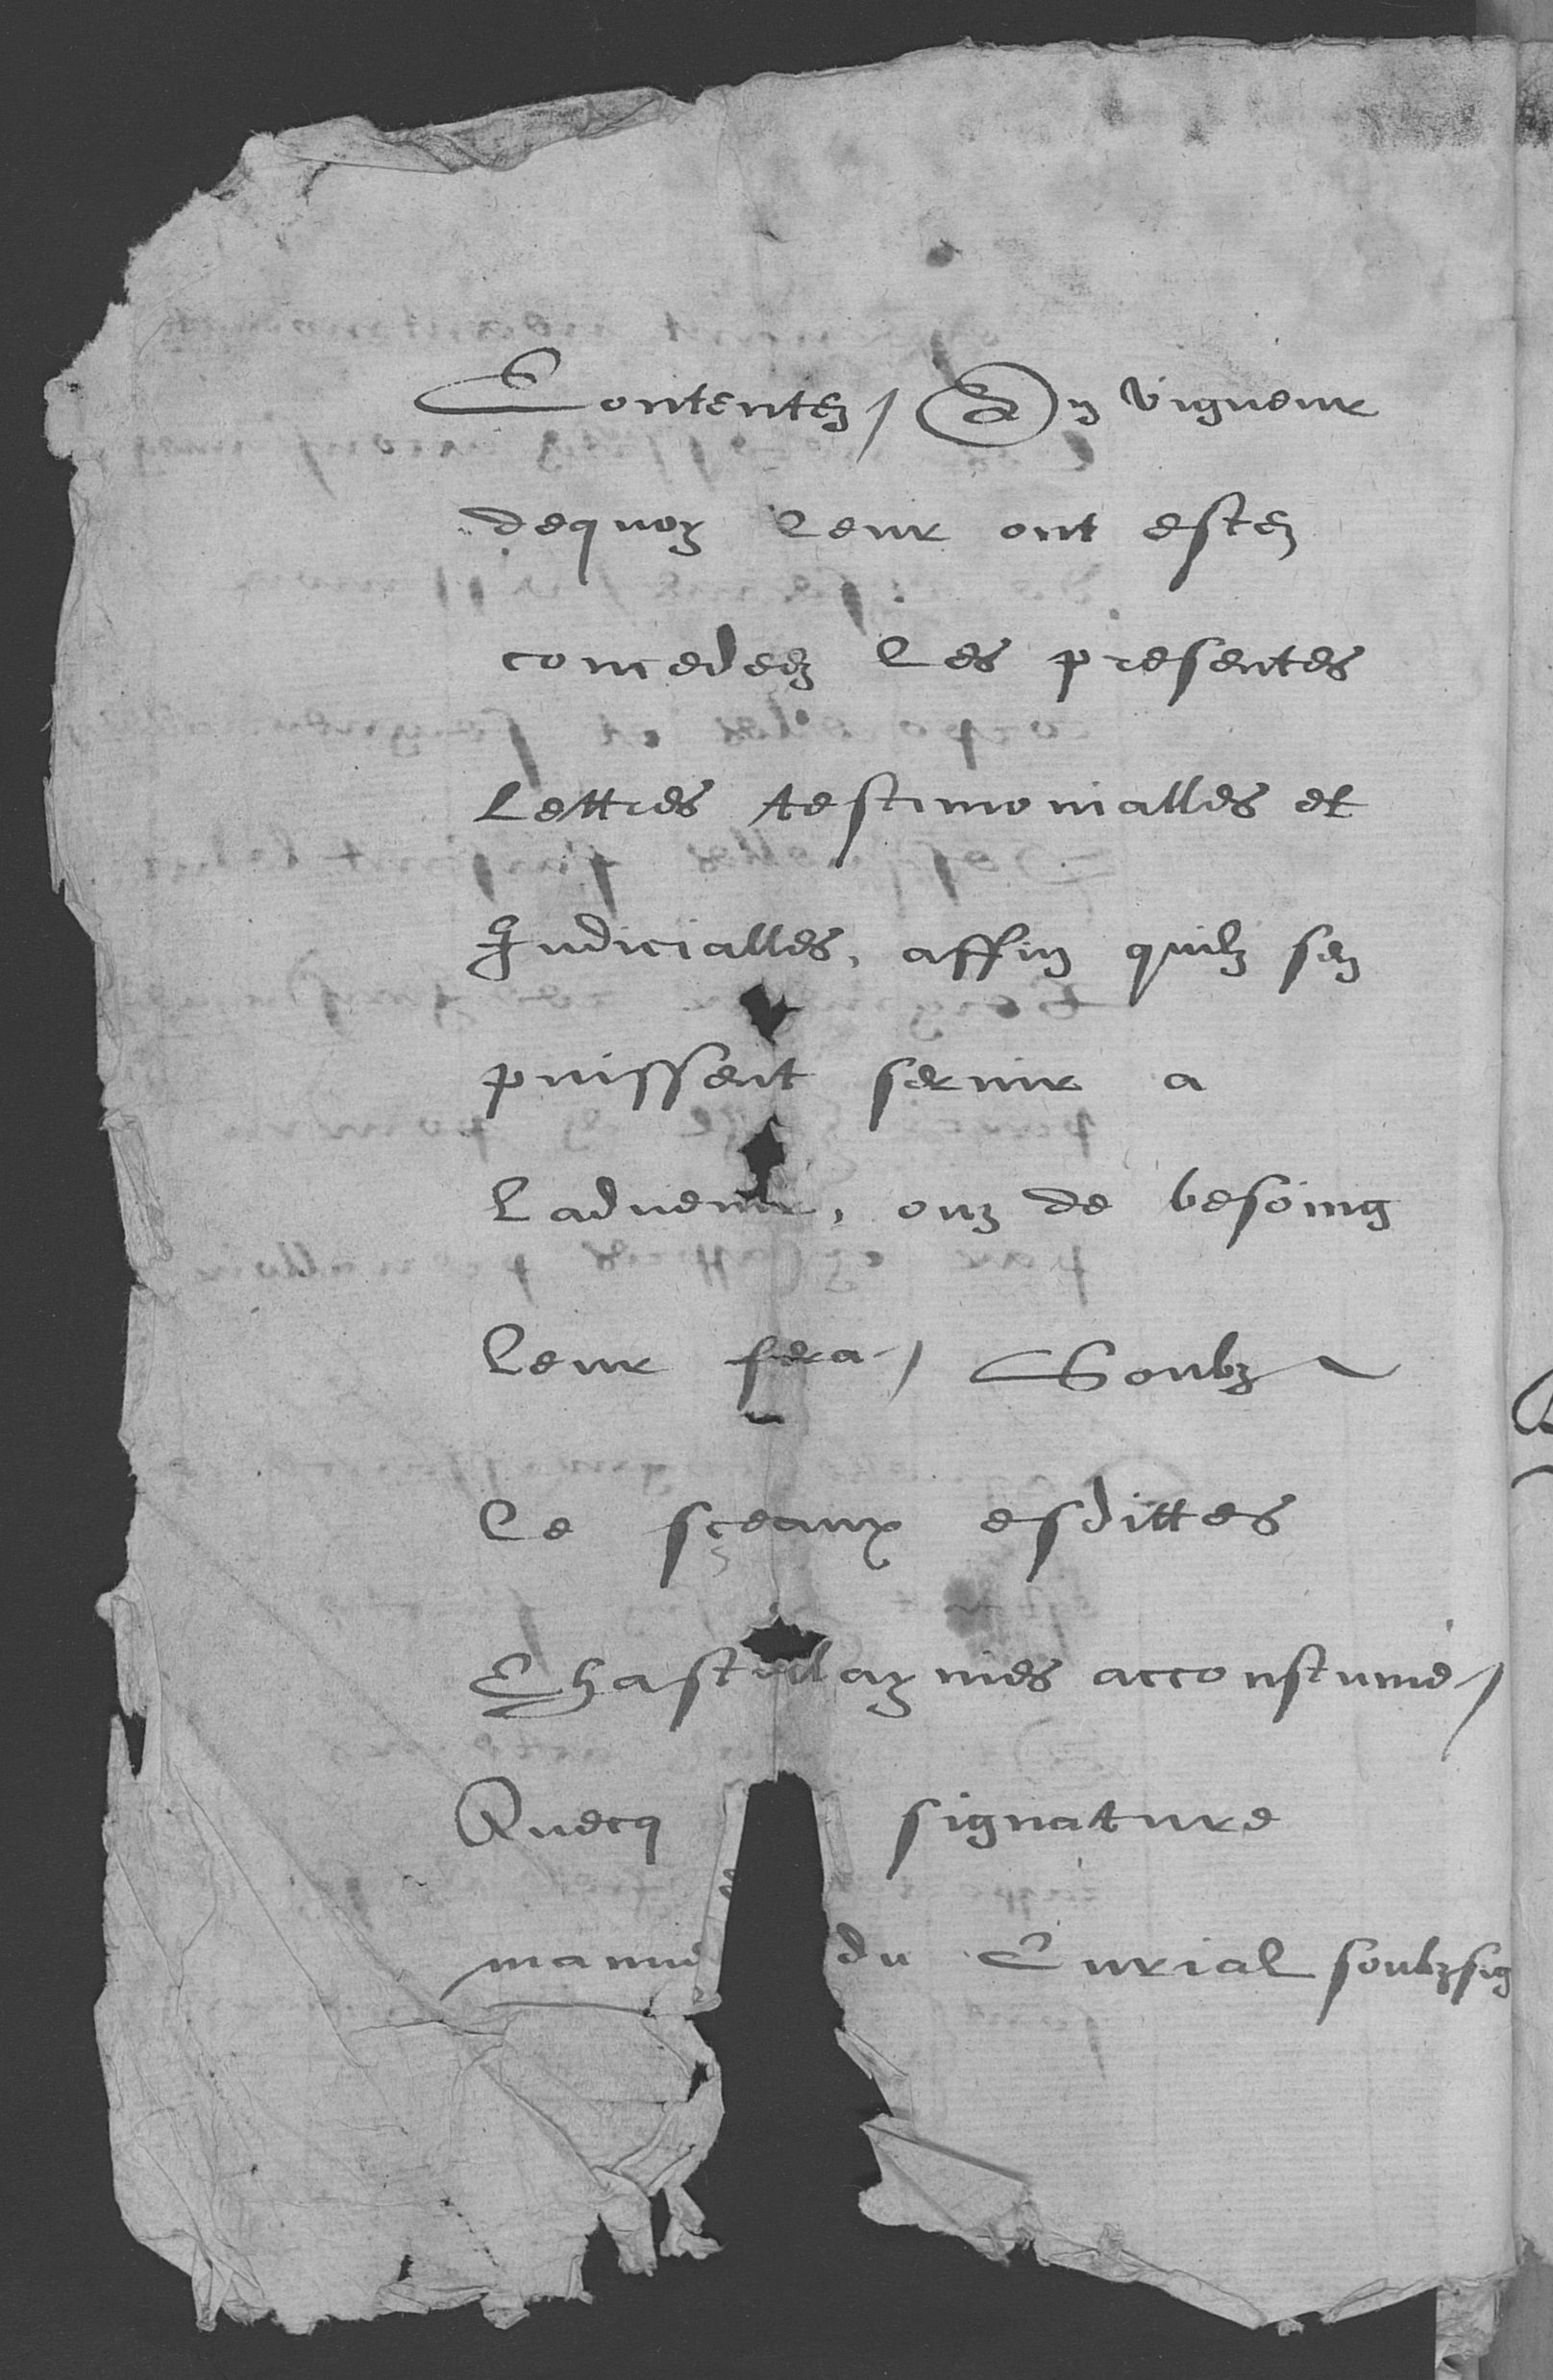 Contentez / En vigueur
dequoy leur ont estez
concedeez les presentes
Lettres testimonialles et
Judicialles, affin quilz sen
puissent servir a
Ladvenir, ou de besoing
leur sera / Soubz
le sçeaux esdittes
Chastellaynies accoustumé /
Avecq signature
manu du Curial soubzsig